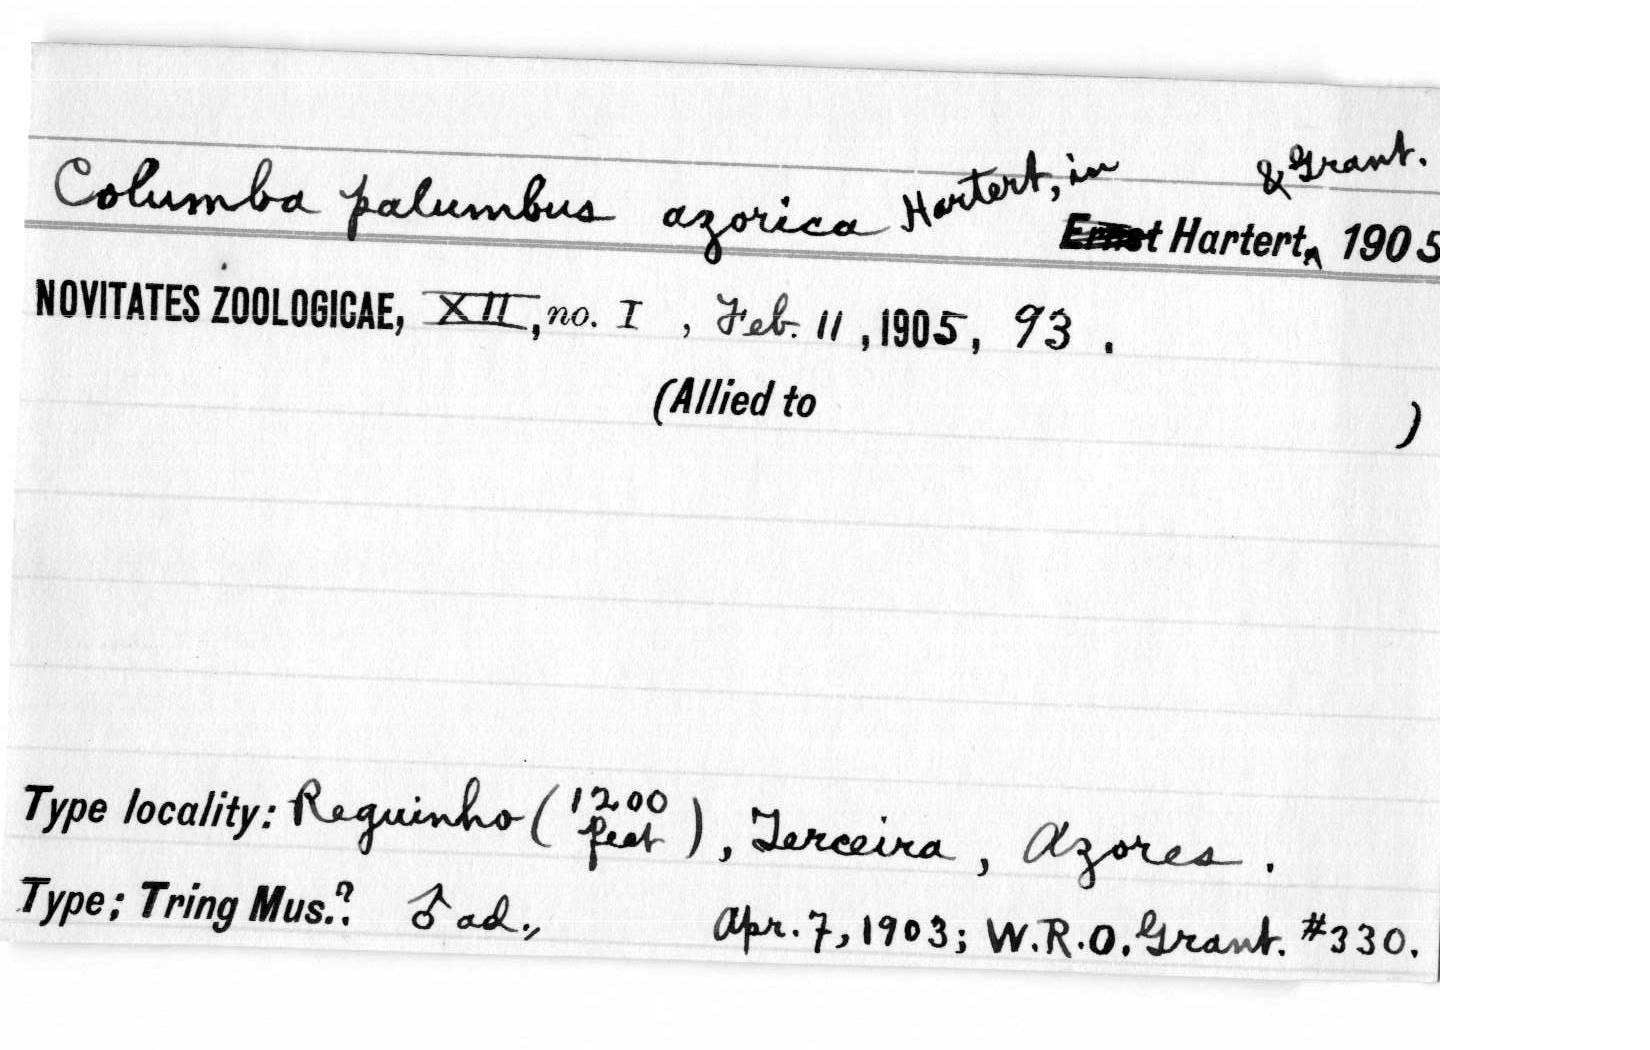 Columba palumbus azorica Hartert, in Hartert, & Grant. 1905
NOVITATES ZOOLOGICAE, XII, no. I , Feb. 11 , 1905, 93 .
(Allied to )
Type locality: Reguinho (1200 feet), Terceira, Azores .
Type; Tring Mus.? ♂ ad., Apr. 7, 1903; W.R.O. Grant. #330.